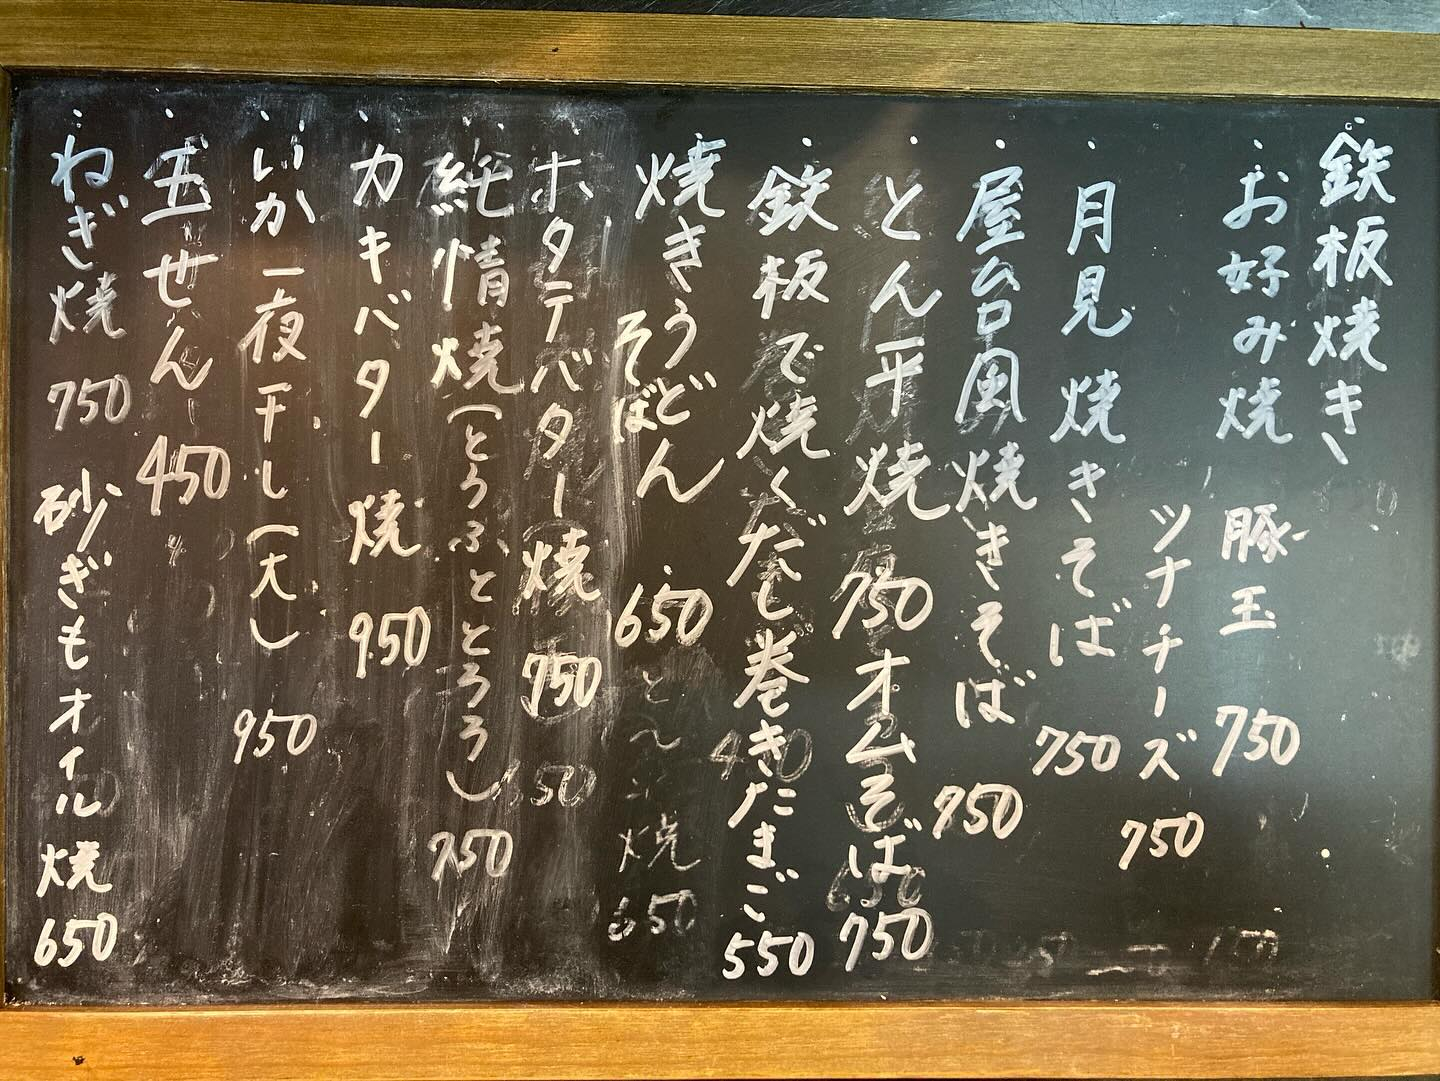 鉄板焼き
・お好み焼 豚玉 750
ツナチーズ 750
・月見焼きそば 750
・屋台風焼きそば 750
・とん平焼 750 オムそば 750
・鉄板で焼くだし巻きたまご 550
・焼きうどん
そば 650
・ホタテバター焼 750
・純情焼(とうふととろろ) 750
・カキバター焼 950
・いか一夜干し(大) 950
・玉せん 450
・ねぎ焼 750 砂ぎもオイル焼 650